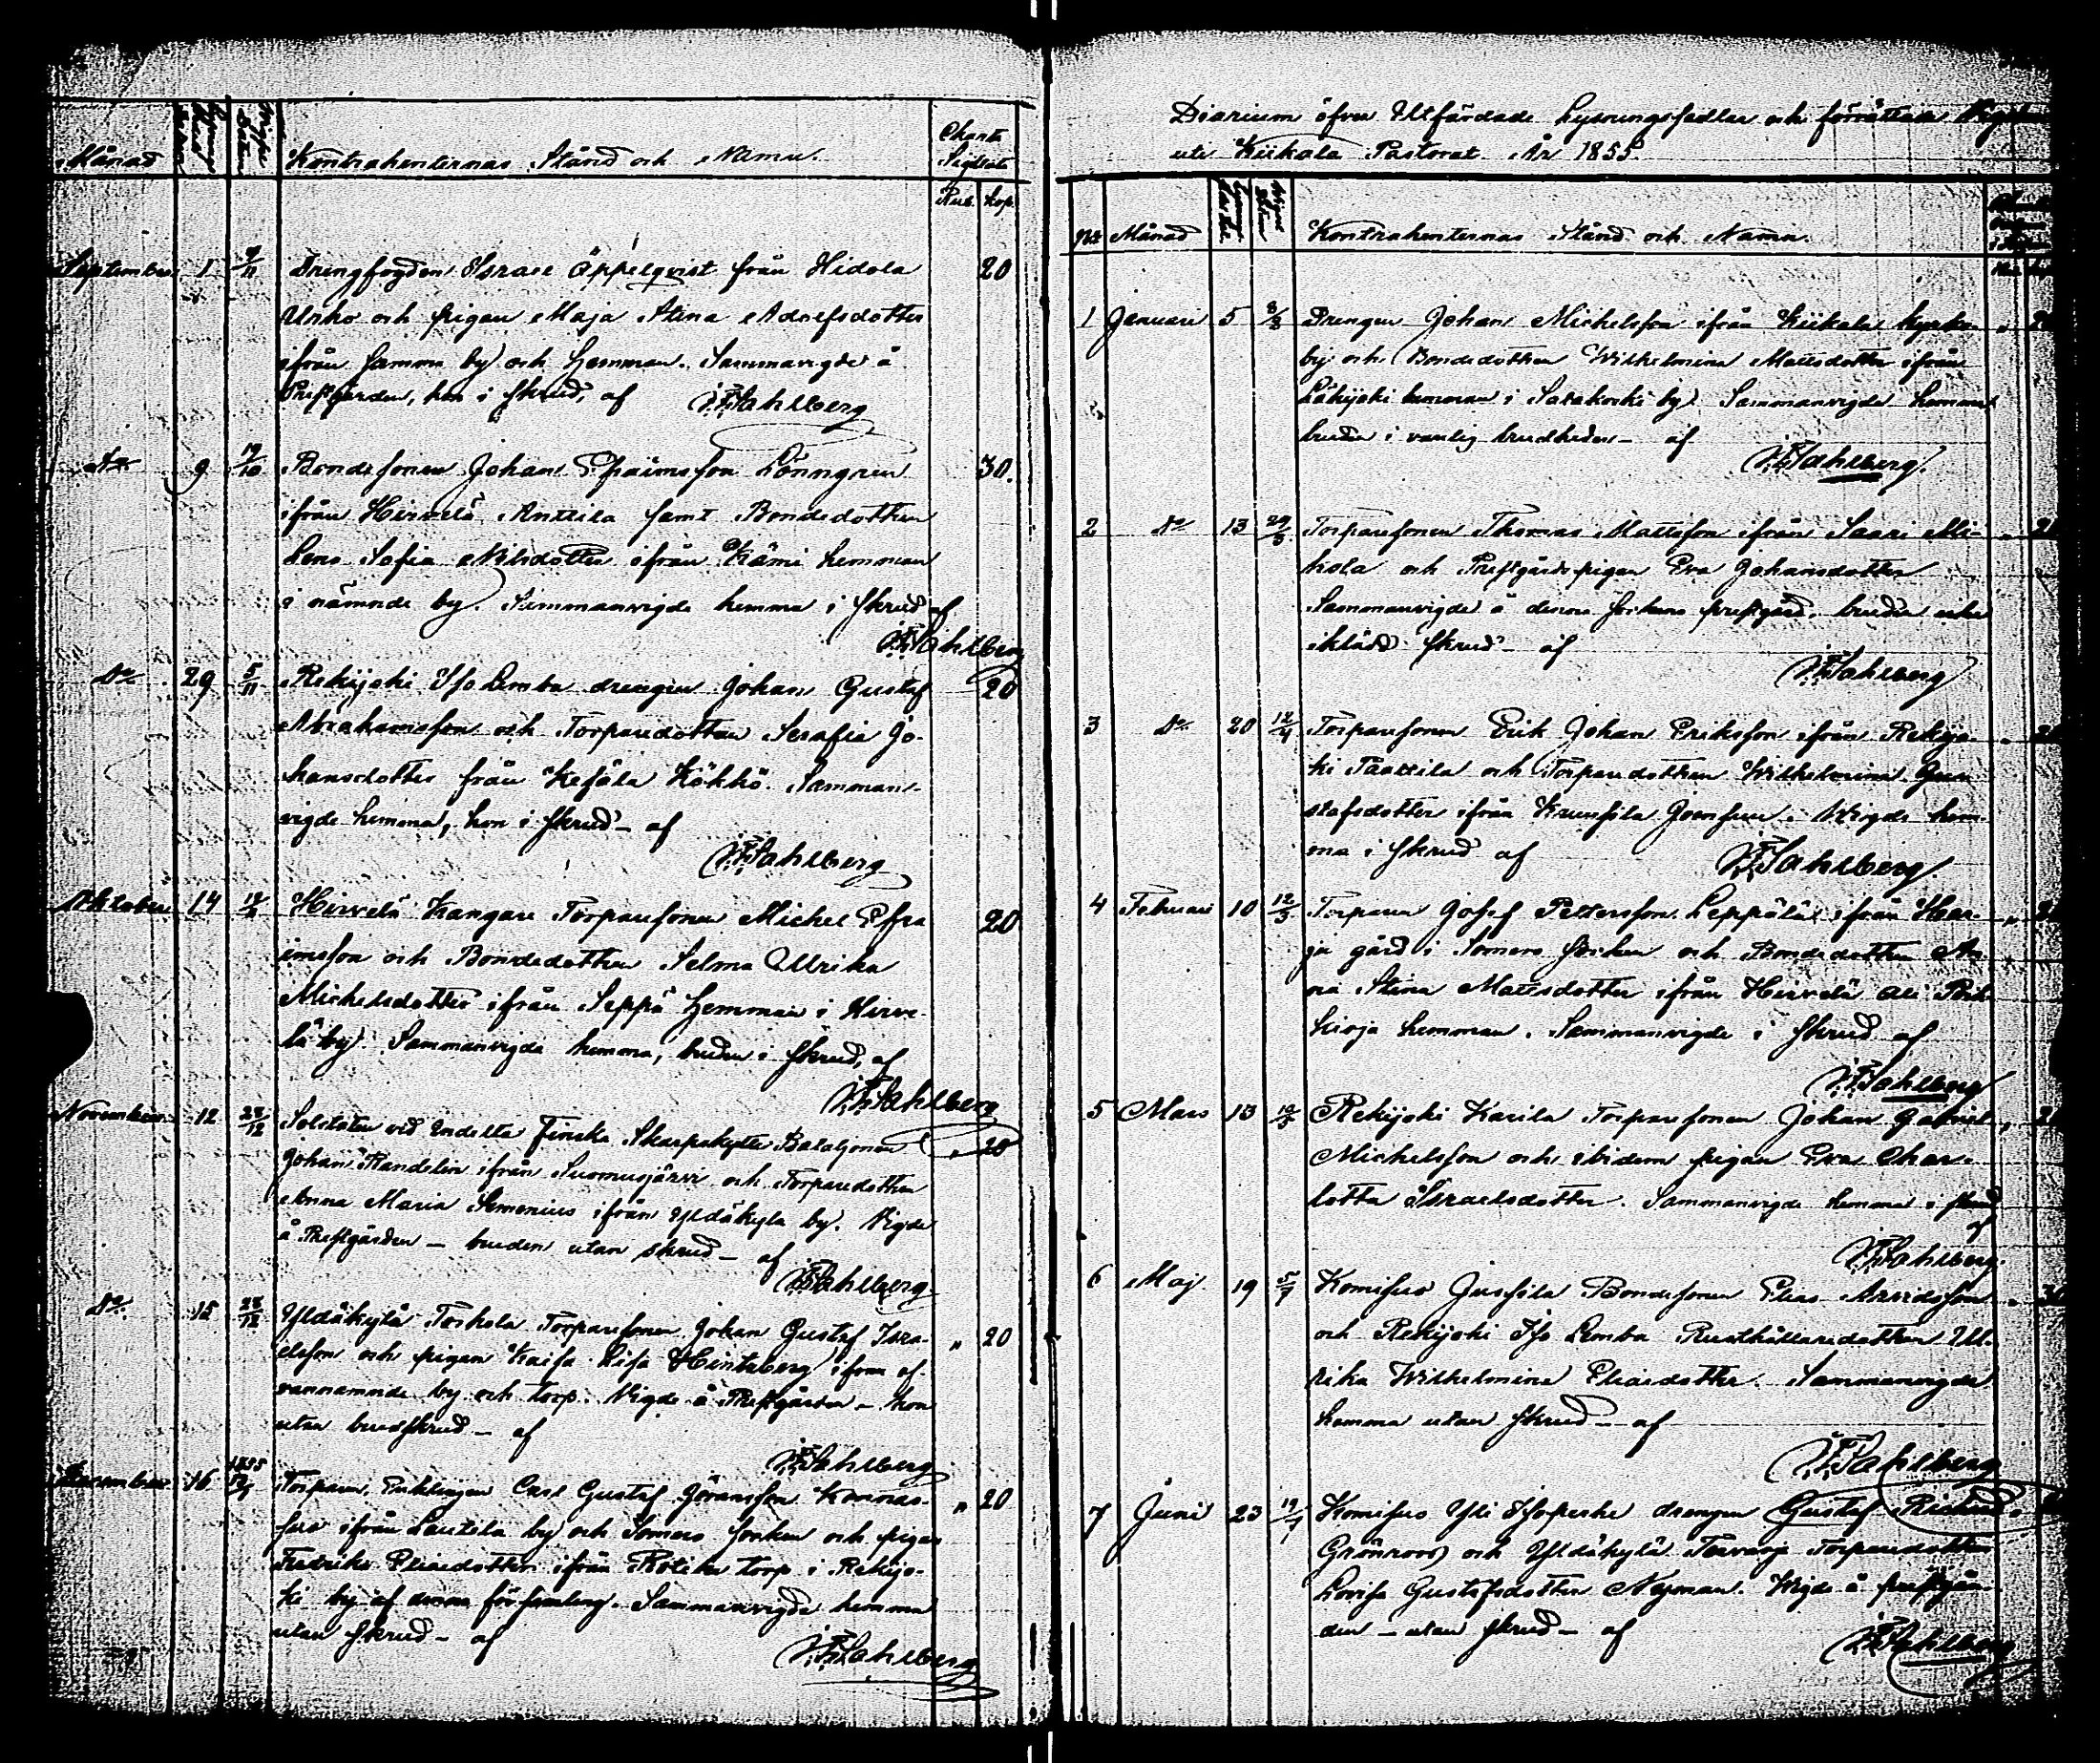 Månad Kontrahenternas Stånd och Namn. Charta Sigillata
Rub. Kop.
September 1 Drengfogden Israel Äppelqvist från Hidola 20
Uuho och pigan Maja Stina Adolfsdotter
ifrån samma by och hemman. Sammanvigde å
Prestgården, hon i skrud, af
9 Bondesonen Johan Efraimsson Lönngren 30.
ifrån Hirvelä Anttila samt Bondedottren
Lena Sofia Nilsdotter ifrån Kämi hemman
i nämnde by. Sammanvigde hemma i skrud af
Do 29 5/11 Rekijoki Iso Lemba drengen Johan Gustaf 20
Abrahamsson och Torparedottren Serafia Jo-
hansdotter från Kesäla Kökkö. Samman-
vigde hemma, hon i skrud - af
Oktober 14 Hirvelä Kangare Torparesonen Michel Efra 20
imsson och Bondedottren Selma Ulrika
Michelsdotter ifrån Seppä hemman i Hirve-
lä by. Sammanvigda hemma, bruden i skrud, af
November 12 28/12 Soldaten vid Indelta Finska Skarpskytte Bataljonen 20
Johan Randelin ifrån Suomusjärvi och Torparedottren
Anna Maria Simonius ifrån Yldäkylä by. Vigde
å Prestgården - bruden utan skrud - af
Do 15 28/12 Yldäkylä Torkola Torparesonen Johan Gustaf Isra- " 20
elsson och pigan Kaisa Lisa Hintzberg ifrån of-
vannämnde by och torp. Vigde å Prestgården - hon
utan brudskrud - af
December 16 1855 Torparen, Enklingen Carl Gustaf Göransson " 20
ifrån Lautela by och Somero socken och pigan
Fredrika Eliaedotter ifrån torp i Rekijo-
ki by af denna församling. Sammanvigde hemma
utan skrud - af
Diarium öfver Utfärdade Lysningssedlar och förrättade
uti Kiikala Pastorat År 1855.
No Månad Kontrahenternas Stånd och Namn.
1 Januari 5 8/3 Drengen Johan Michelsson ifrån Kiikala kyrko-
by och Bondedottren Wilhelmina Mattsdotter ifrån
hemman i by. Sammanvigde hemma
bruden i vanlig brudkläder - af
2 Do 13 29/3 Torparesonen Thomas Mattsson ifrån Saari Mi-
kola och Prestgårds pigan Eva Johansdotter
Sammanvigde å denna sockens prestgård. bruden
iklädd skrud - af
3 Do 20 12/4 Torparesonen Erik Johan Eriksson ifrån Rekijo-
ki Taattila och Torparedottren Wilhelmina Gu-
stafsdotter ifrån Krusila Joensuu. Wigde hem-
ma i skrud af
4 Februari 10 12/3 Torparen Josef Pettersson Leppälä ifrån Har-
ju gård i Somero socken och Bondedottren An-
na Stina Mattsdotter ifrån Hirvelä Ali
hemman. Sammanvigde i skrud af
5 Mars 13 Rekijoki Karila Torparesonen Johan Gabriel
Michelsson och ibidem pigan Eva Char-
lotta Israelsdotter. Sammanvigde hemma i skrud
af
6 Maj 19 5/7 Komisuo Jussila Bondesonen Elias Arvidsson
och Rekijoki Iso Lemba Rusthållaredottren Ul-
rika Wilhelmina Eliaedotter. Sammanvigde
hemma utan skrud - af
7 Juni 23 Komisuo Yli Isopeske drengen Gustaf Richard
Grönroos och Yldäkylä Torparedottren
Lovisa Gustafsdotter Nyman. Wigde å prestgår-
den - utan skrud - af